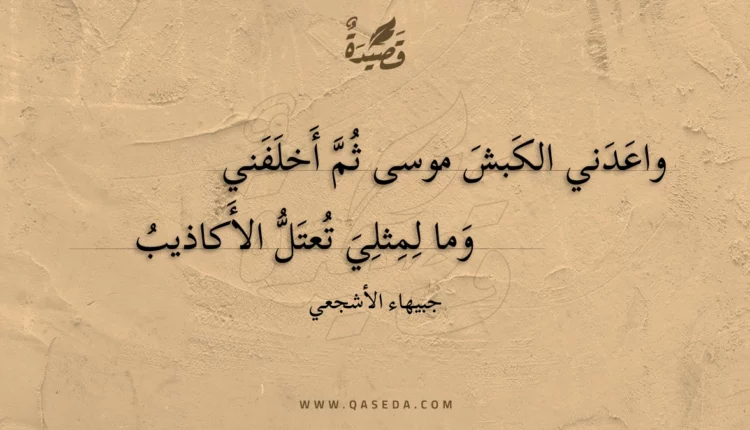 قَصِيدَةٌ
واعَدَني الكَبشَ موسى ثُمَّ أَخلَفَني
وَما لِمِثلِيَ تُعتَلُّ الأَكاذيبُ
جبيهاء الأشجعي
WWW.QASEDA.COM